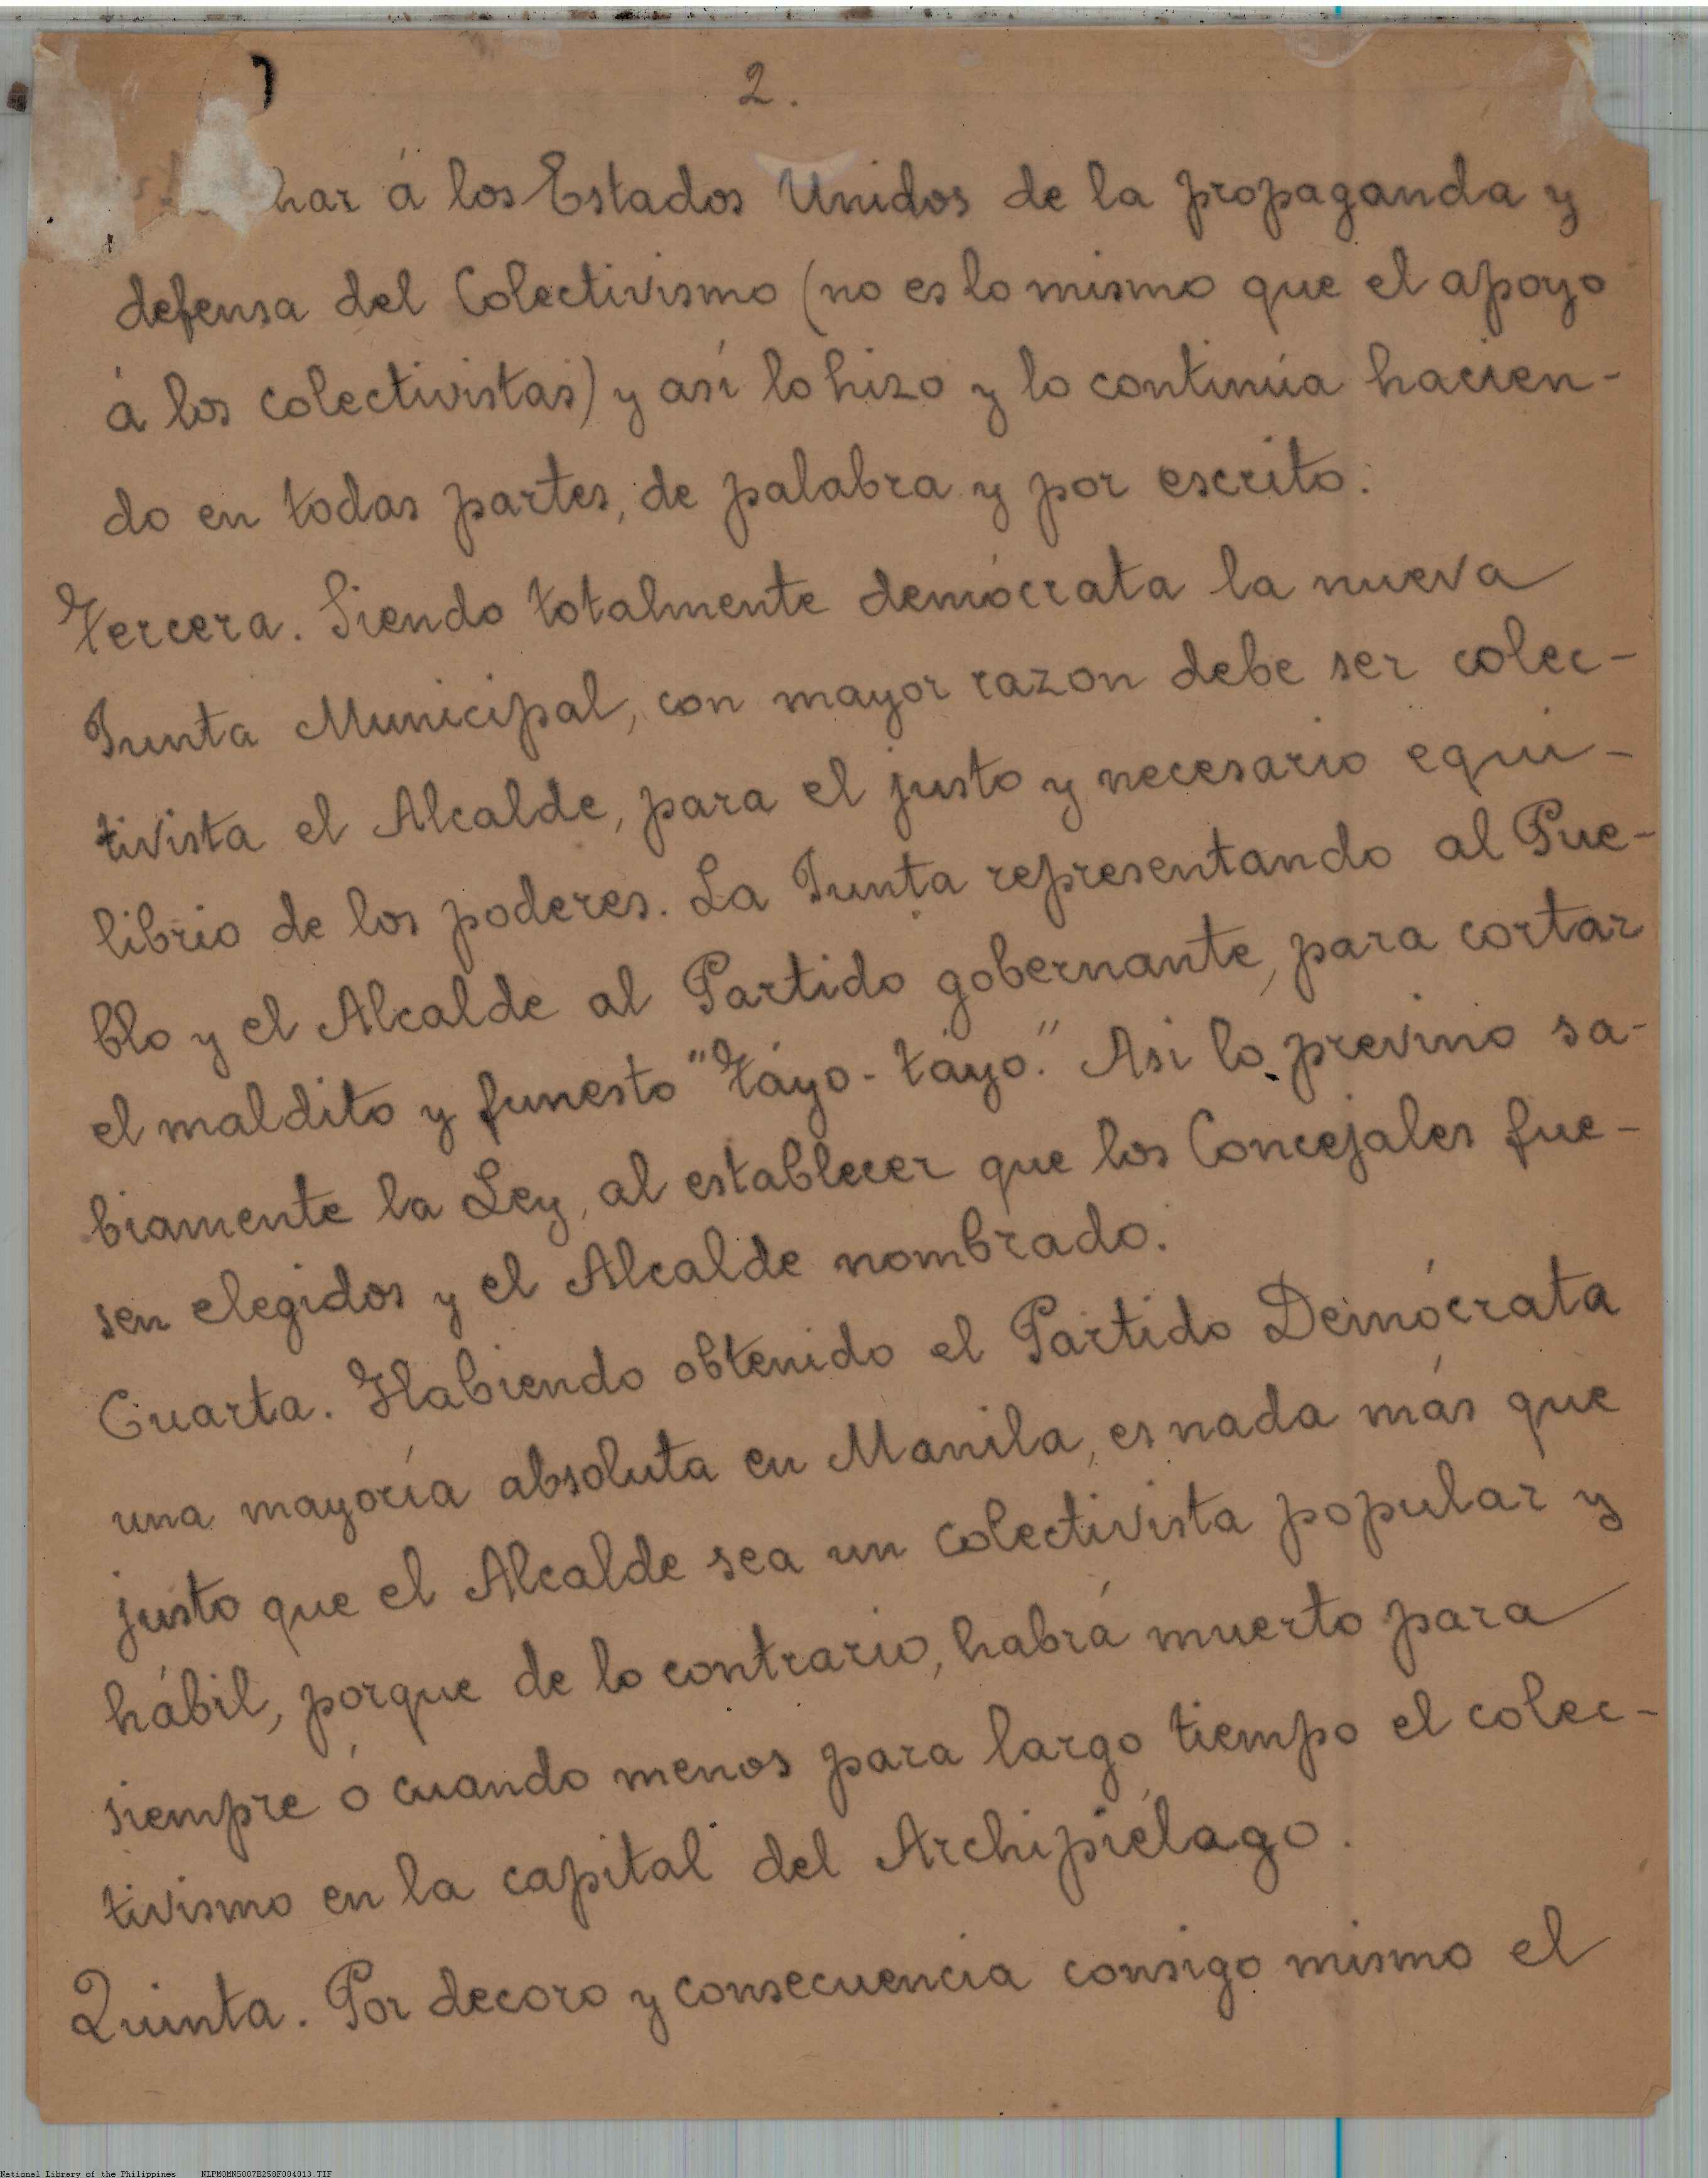 2.
har á los Estados Unidos de la propaganda y
defensa del Colectivismo (no es lo mismo que el apoyo
á los colectivistas) y así lo hizo y lo continúa hacien-
do en todas partes, de palabra y por escrito.
Tercera. Siendo totalmente demócrata la nueva
Junta Municipal, con mayor razon debe ser colec-
tivista el Alcalde, para el justo y necesario equi-
librio de los poderes. La Junta representando al Pue-
blo y el Alcalde al Partido gobernante, para cortar
el maldito y funesto "Táyo-táyo." Asi lo previno sa-
biamente la Ley, al establecer que los Concejales fue-
sen elegidos y el Alcalde nombrado.
Cuarta. Habiendo obtenido el Partido Demócrata
una mayoría absoluta en Manila, es nada más que
justo que el Alcalde sea un colectivista popular y
hábil, porque de lo contrario, habrá muerto para
siempre ó cuando menos para largo tiempo el colec-
tivismo en la capital del Archipiélago.
Quinta. Por decoro y consecuencia consigo mismo el
National Library of the Philippines NLPMQMNS007B258F004013.TIF